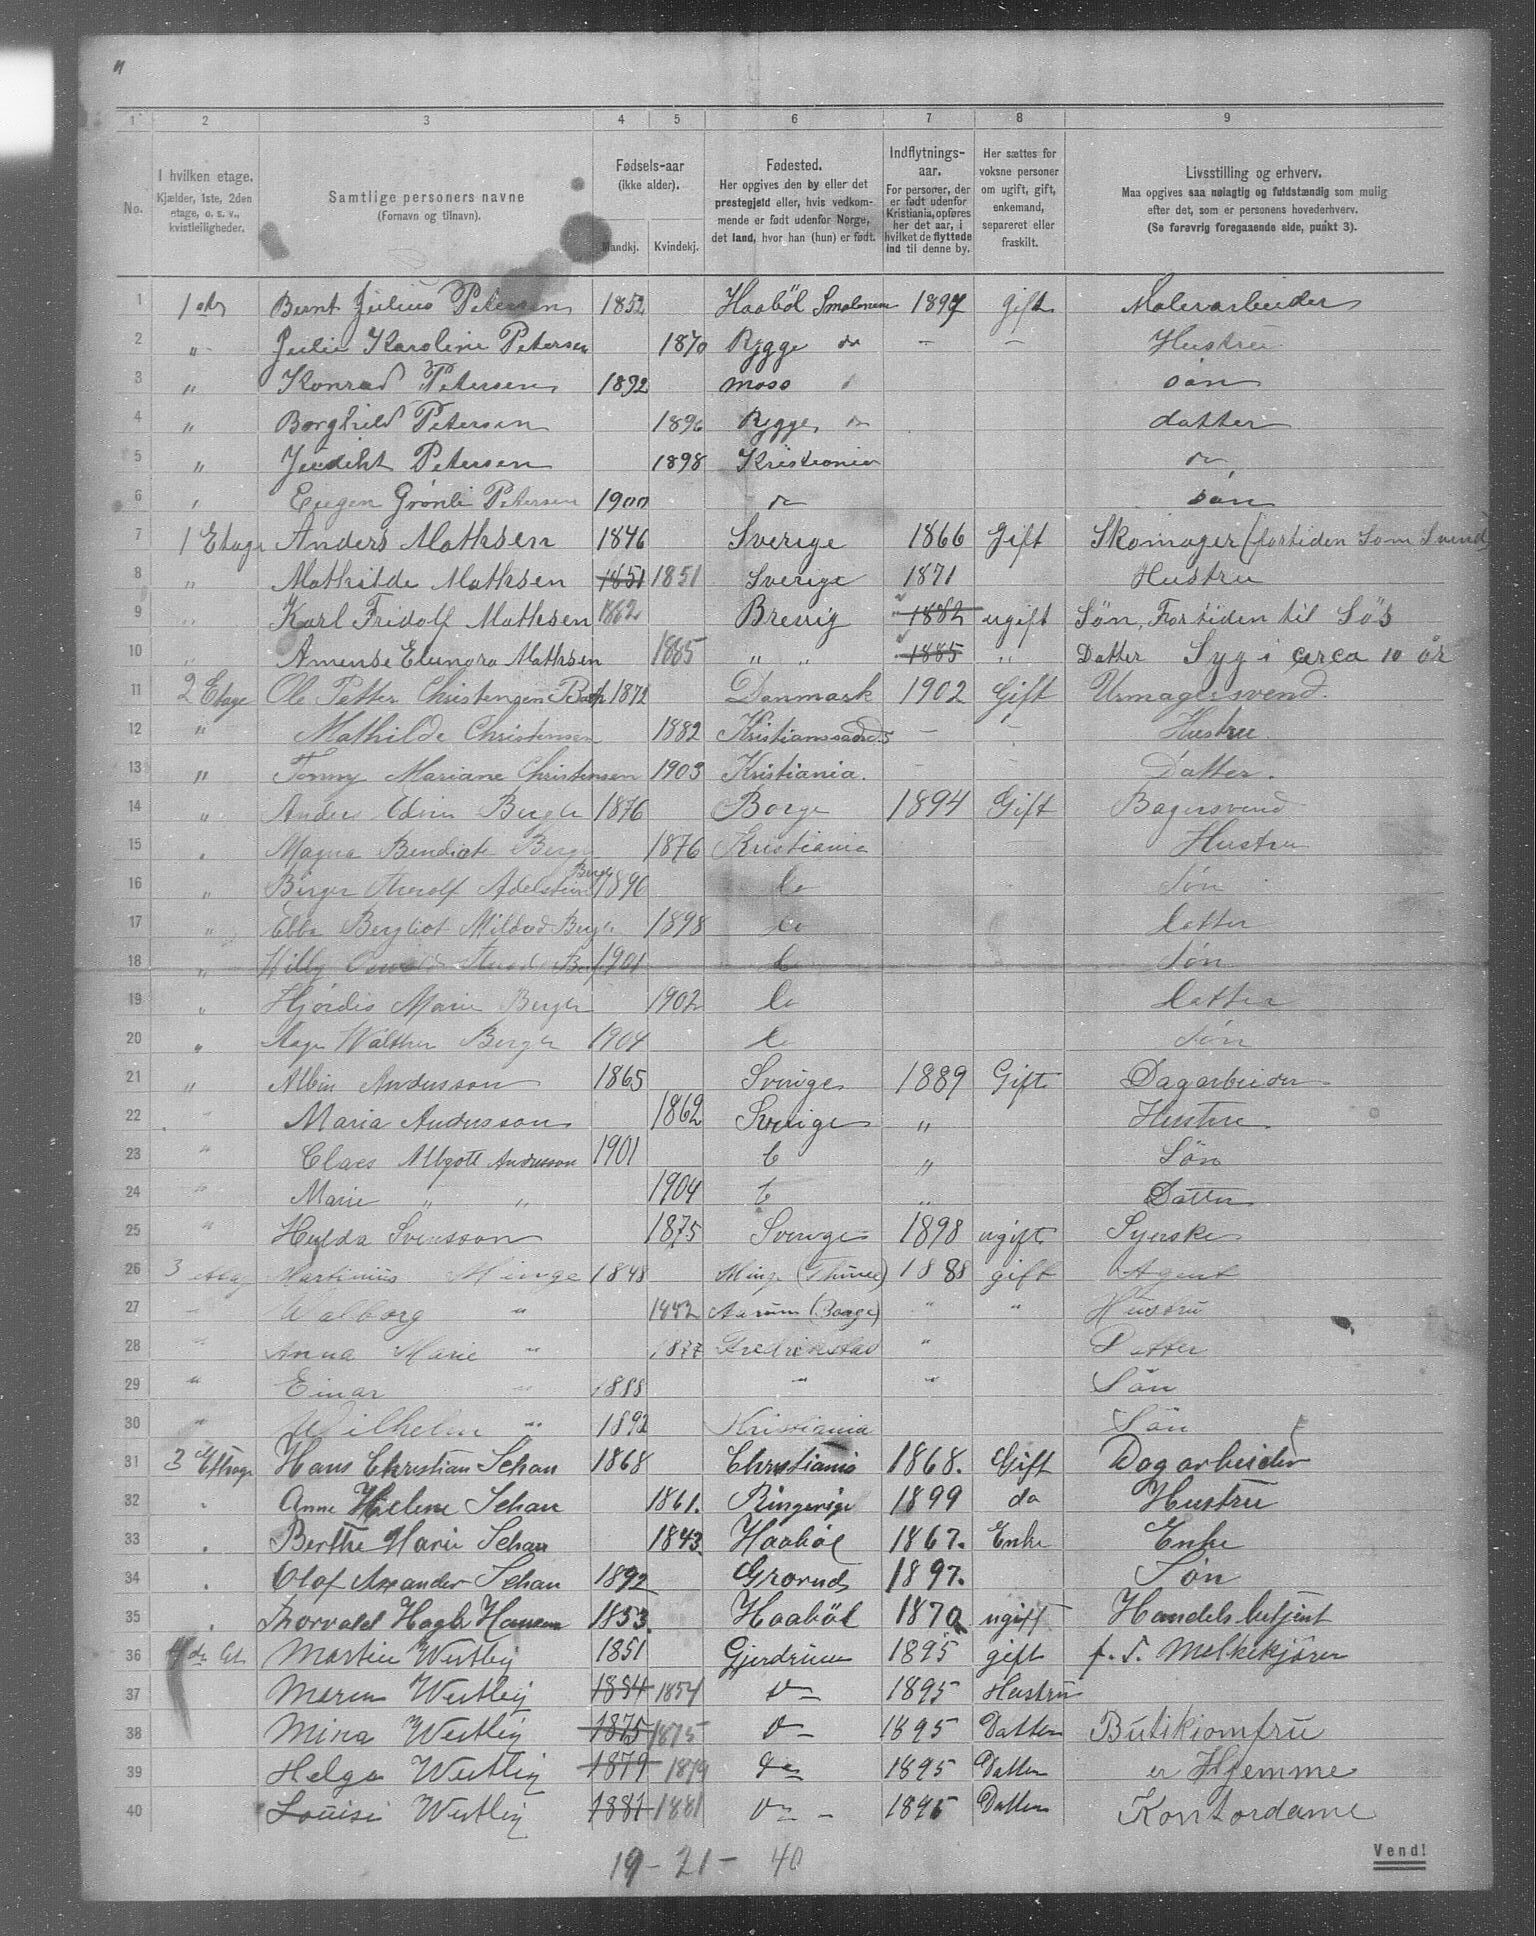 1 2 3 4 5 6 7 8 9
No.
I hvilken etage. Kjælder, 1ste, 2den etage, o. s. v., kvistleiligheder.
Samtlige personers navne (Fornavn og tilnavn).
Fødsels-aar (ikke alder). Mandkj. Kvindekj.
Fødested. Her opgives den by eller det prestegjeld eller, hvis vedkommende er født udenfor Norge, det land, hvor han (hun) er født.
Indflytnings-aar. For personer, der er født udenfor Kristiania, opføres her det aar, i hvilket de flyttede ind til denne by.
Her sættes for voksne personer om ugift, gift, enkemand, separeret eller fraskilt.
Livsstilling og erhverv. Maa opgives saa nølagtig og fuldstændig som mulig efter det, som er personens hovederhverv. (Se forøvrig foregaaende side, punkt 3).
1 1ste Bernt Julius Petersen 1852 Haabøl Smalenene 1897 Gift Malerarbeider
2 " Julie Karoline Petersen 1870 Rygge do — — Hustru
3 " Konrad Petersen 1892 Moss søn
4 " Borghild Petersen 1896 Rygge do datter
5 " Judiht Petersen 1898 Kristiania do
6 " Eugen Grønli Petersen 1900 do søn
7 1 Etage Anders Mathsen 1846 Sverige 1866 Gift Skomager (fortiden som Svend)
8 " Mathilde Mathsen 1851 1851 Sverige 1871 Hustru
9 " Karl Fridolf Mathsen 1882 Brevig 1882 ugift Søn, Fortiden til Søs
10 " Amense Elenora Mathsen 1885 " " 1885 " Datter Syg i circa 10 år
11 2 Etage Ole Petter Christensen 1872 Danmark 1902 Gift Urmagersvend.
12 " Mathilde Christensen 1882 Kristianssand S — Hustru
13 " Tommy Mariane Christensen 1903 Kristiania. — — Datter.
14 " Anders Edvin Berger 1876 Borge 1894 Gift Bagersvend
15 " Magna Bendicte Berger 1876 Kristiania Hustru
16 " Birger Thorolf Adelstein Berger 1896 do Søn
17 " Ebba Bergliot Mildred Berger 1898 do datter
18 " Willy Berger 1901 do Søn
19 " Hjørdis Marie Berger 1902 do datter
20 " Aage Walther Berger 1904 do Søn
21 " Albin Andersson 1865 Sverige 1889 Gift Dagarbeider
22 " Maria Andersson 1862 Sverige " Hustru.
23 " Claes Albgott Andersson 1901 " Søn
24 " Marie " " 1904 " Datter
25 " Hulda Svensson 1875 Sverige 1898 ugift Syerske
26 3 etag Martinius Minge 1848 Minge (Thune) 1888 gift Agent
27 " Walborg " 1852 Aarum (Borge) " " Hustru
28 " Anna Marie " 1877 Fredrikstad " Datter
29 " Einar " 1888 " " Søn
30 " Wilhelm " 1892 Kristiania Søn
31 3 Ethage Hans Christian Schau 1868 Christiania 1868. Gift Dagarbeider
32 " Anne Helene Schau 1861. Ringerige 1899 do Hustru
33 " Berthe Marie Schau 1843. Haabøl 1867. Enke Enke
34 " Olaf Alexander Schau 1892 Grorud 1897. Søn
35 " Thorvald Hagb. Hansen 1853. Haabøl 1870 ugift Handelsbetjent
36 4de Et. Martin Westlij 1851 Gjerdrum 1895 gift f. T. Melkekjører
37 Maren Westlij 1854 1854 Do 1895 Hustru
38 Mina Westlij 1875 1875 Do 1895 Datter Butikjomfru
39 Helga Westlij 1879 1879 Do 1895 Datter er Hjemme
40 Louise Westlij 1881 1881 Do — 1895 Datter Kontordame
19 - 21 - 40
Vend!